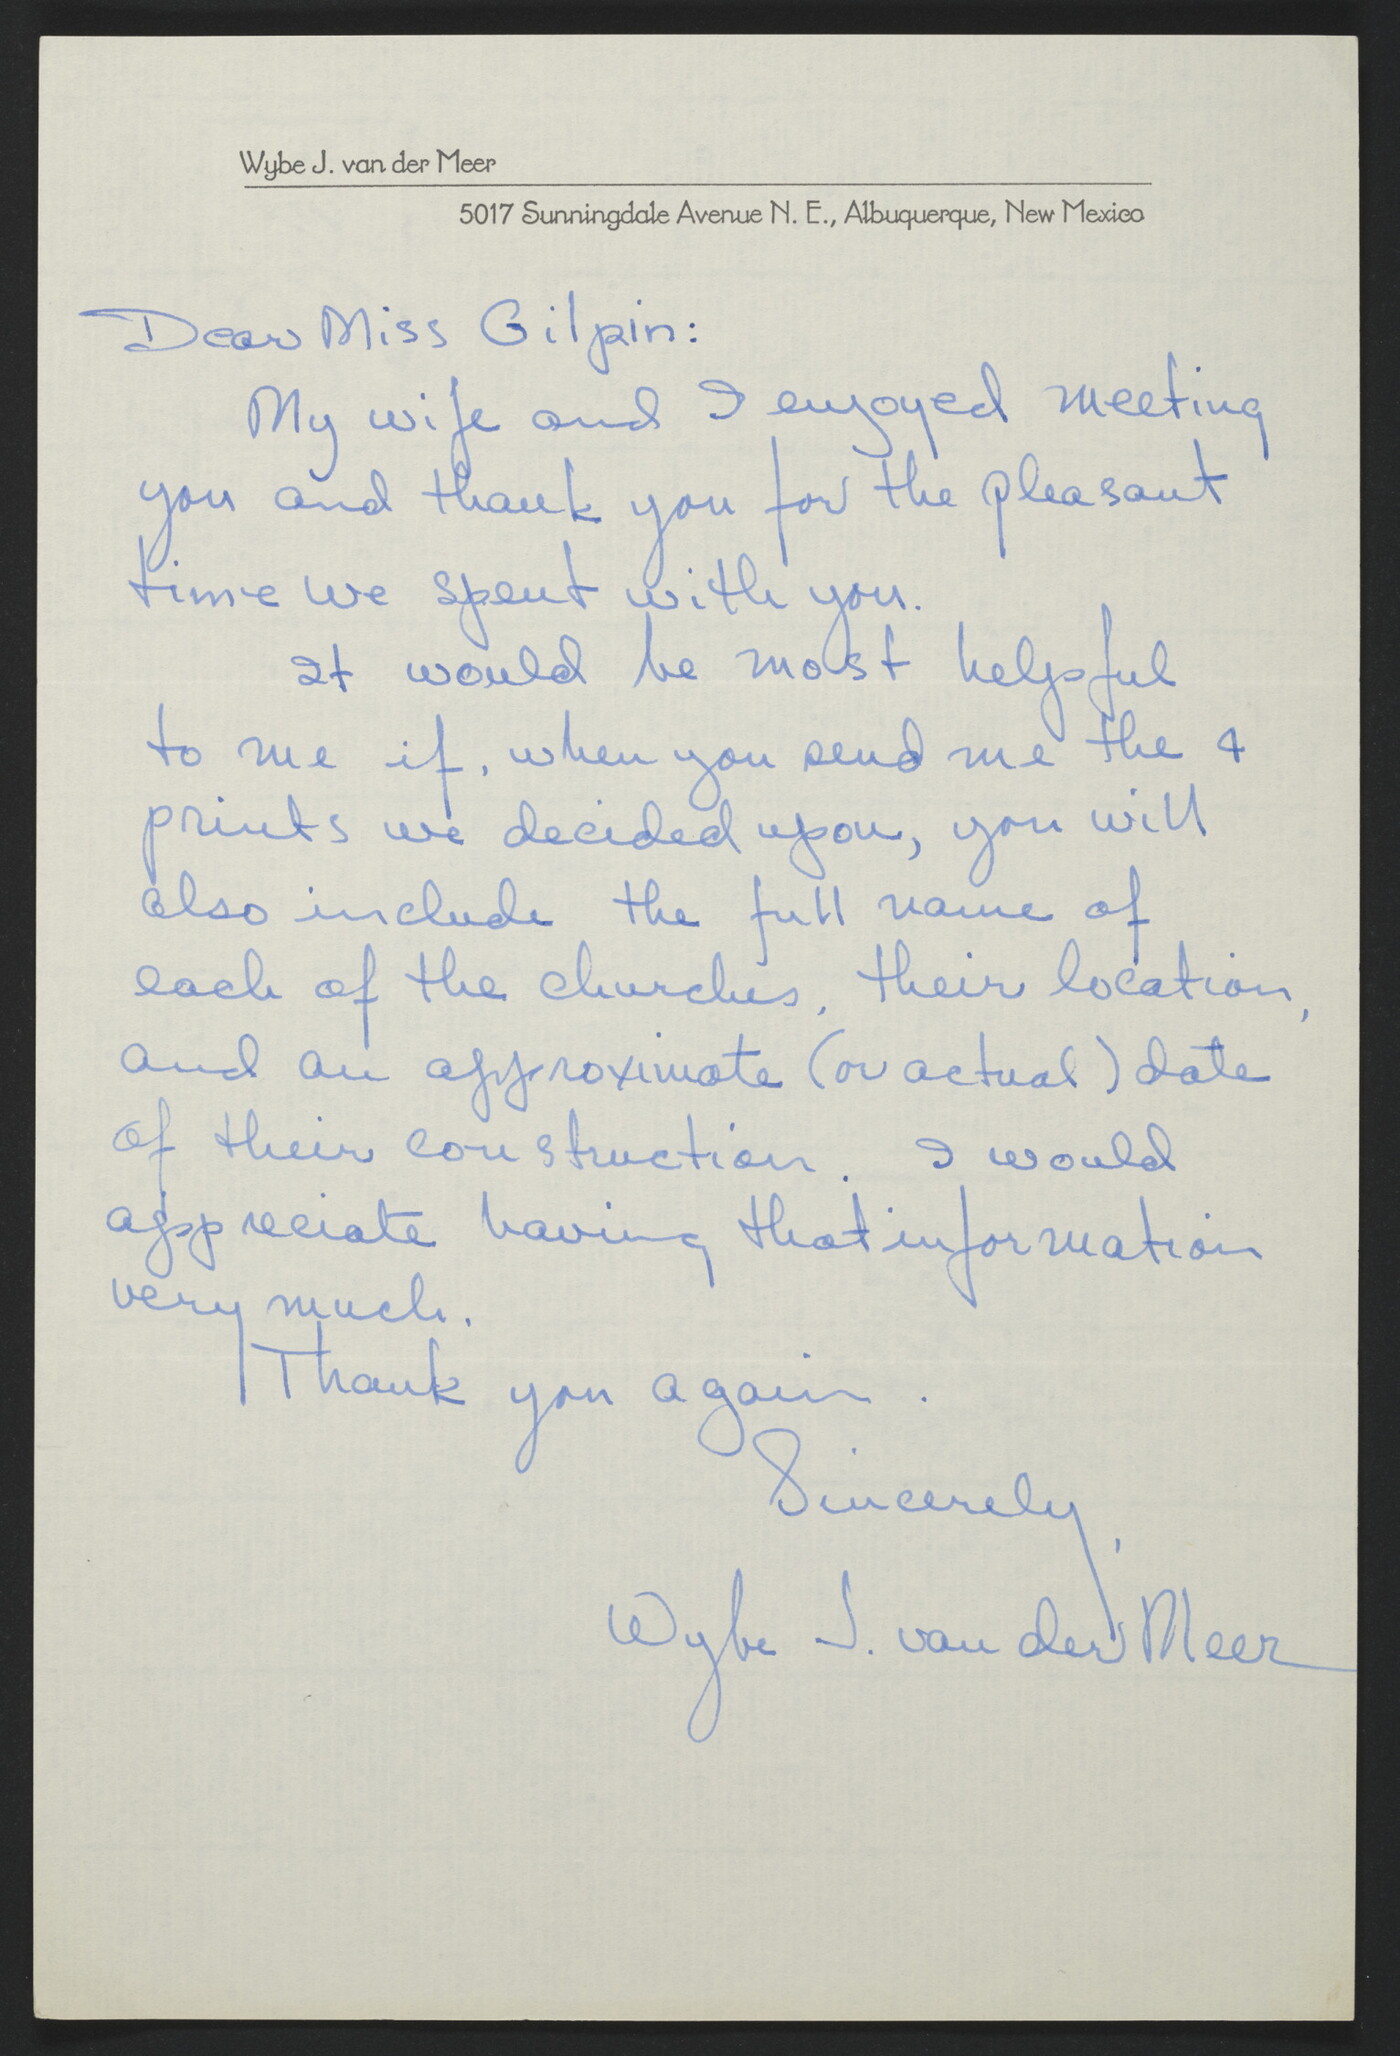 Wybe J. van der Meer
5017 Sunningdale Avenue N. E., Albuquerque, New Mexico
Dear Miss Gilpin:
My wife and I enjoyed meeting
you and thank you for the pleasant
time we spent with you.
It would be most helpful
to me if, when you send me the 4
prints we decided upon, you will
also include the full name of
each of the churches, their location,
and an approximate (or actual) date
of their construction. I would
appreciate having that information
very much.
Thank you again.
Sincerely,
Wybe J. van der Meer